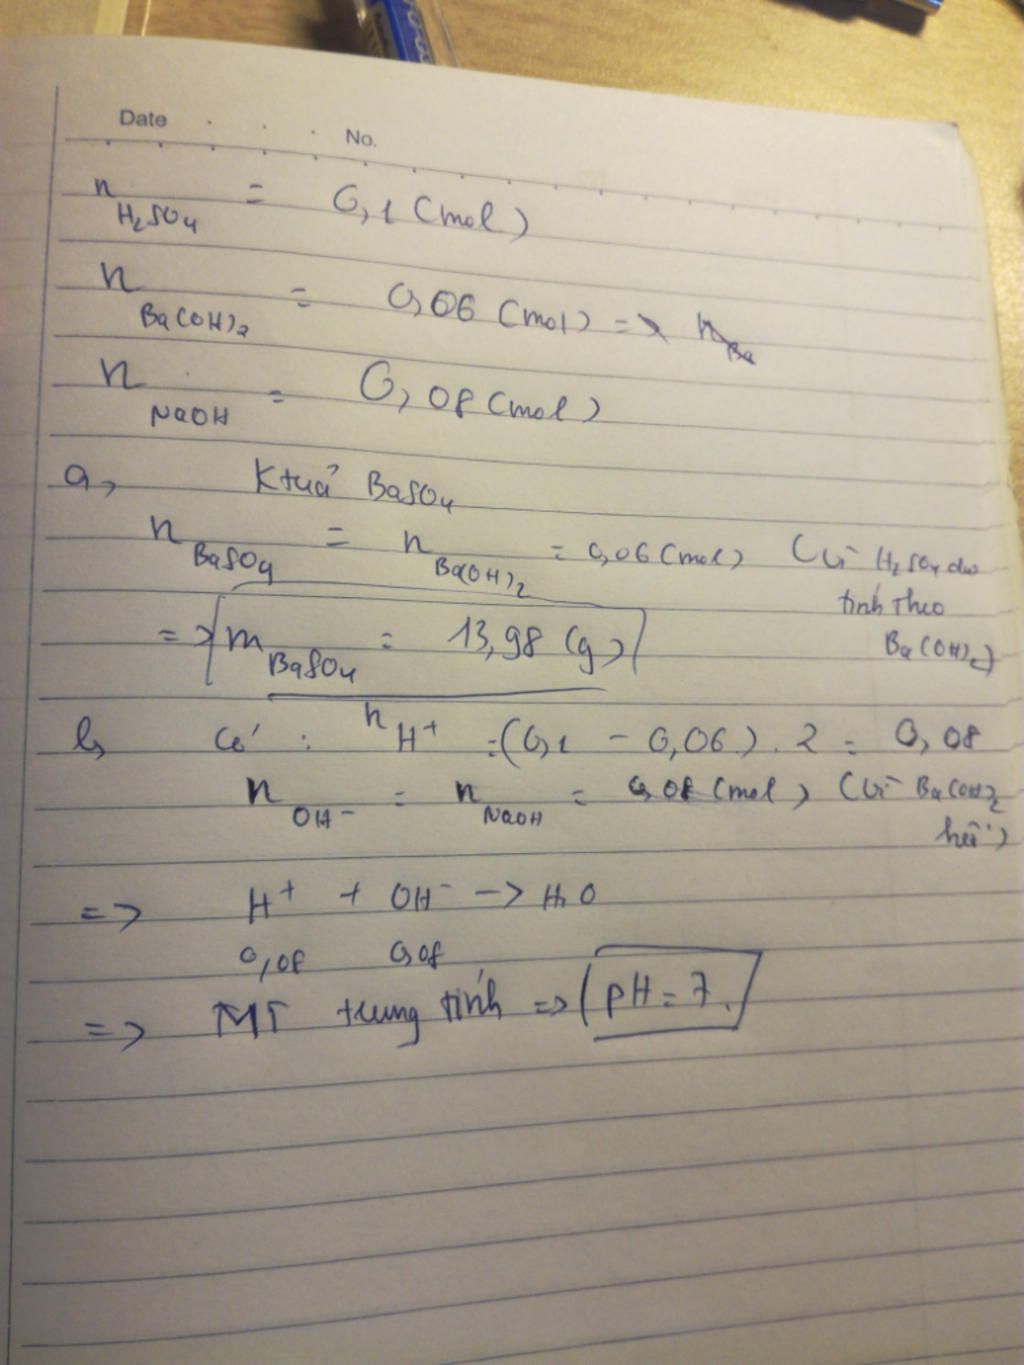 Date . . . No.
n H₂SO₄ = 0,1 (mol)
n Ba(OH)₂ = 0,06 (mol) => n Ba
n NaOH = 0,08 (mol)
a, Ktuả BaSO₄
n BaSO₄ = n Ba(OH)₂ = 0,06 (mol) (Vì H₂SO₄ dư
tính theo
Ba(OH)₂)
=> m BaSO₄ = 13,98 (g)
b, Có : n H⁺ = (0,1 - 0,06) . 2 = 0,08
n OH⁻ = n NaOH = 0,08 (mol) (Vì Ba(OH)₂
hết)
=> H⁺ + OH⁻ -> H₂O
0,08 0,08
=> MT trung tính => pH = 7.